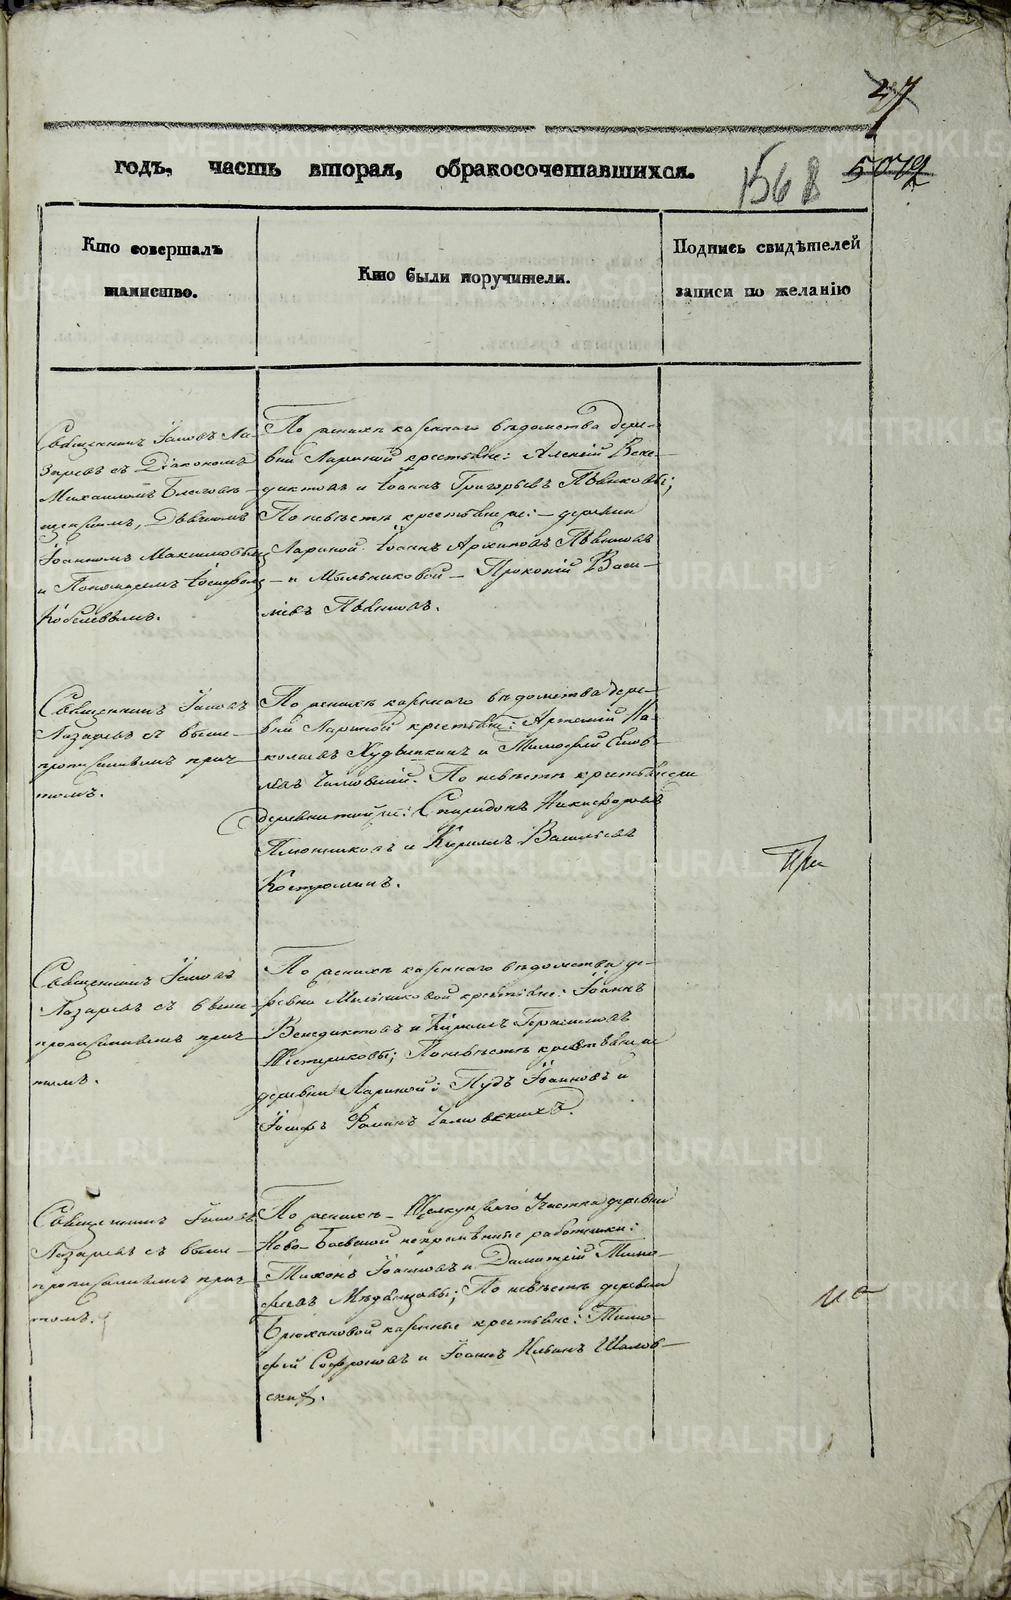 27
годъ, часть вторая, обракосочетавшихся.
568
5079
Кто совершалъ
таинство.
Кто были поручители.
Подпись свидѣтелей
записи по желанію
Священникъ Іаковъ Ла-
заревъ съ Діакономъ
Михаиломъ Благовѣ-
щенскимъ, Дьячкомъ
Іоанномъ Максимовымъ
и Пономаремъ Іосифомъ
Кобелевымъ.
По женихѣ казеннаго вѣдомства дере-
вни Лариной крестьяне: Алексій Вене-
диктовъ и Іоаннъ Григорьевъ Пьянковы;
По невѣстѣ крестьяне же: деревни
Лариной Іоаннъ Архиповъ Пьянковъ
и Мыльниковой Прокопій Васи-
льевъ Пьянковъ.
Священникъ Іаковъ
Лазаревъ съ выше-
прописаннымъ прич-
томъ.
По женихѣ казеннаго вѣдомства дере-
вни Лариной крестьяне: Артемій Ни-
колаевъ и Тимофей
По невѣстѣ крестьяне
деревни той же: Спиридонъ Никифоровъ
Плотниковъ и Кириллъ Васильевъ
Костроминъ.
При
Священникъ Іаковъ
Лазаревъ съ выше-
прописаннымъ прич-
томъ.
По женихѣ казеннаго вѣдомства де-
ревни Мыльниковой крестьяне: Іоаннъ
Венедиктовъ и Кириллъ Герасимовъ
Шестериковы; По невѣстѣ крестьяне же
деревни Лариной: Пудъ Іоанновъ и
Іосифъ
Священникъ Іаковъ
Лазаревъ съ выше-
прописаннымъ прич-
томъ.
По женихѣ Щелкунскаго Участка деревни
Ново-
работники:
Тихонъ Іоанновъ и Димитрій Тимо-
феевъ Медвѣдевы; По невѣстѣ деревни
казенные крестьяне: Тимо-
фей Софроновъ и Іоаннъ Ильинъ